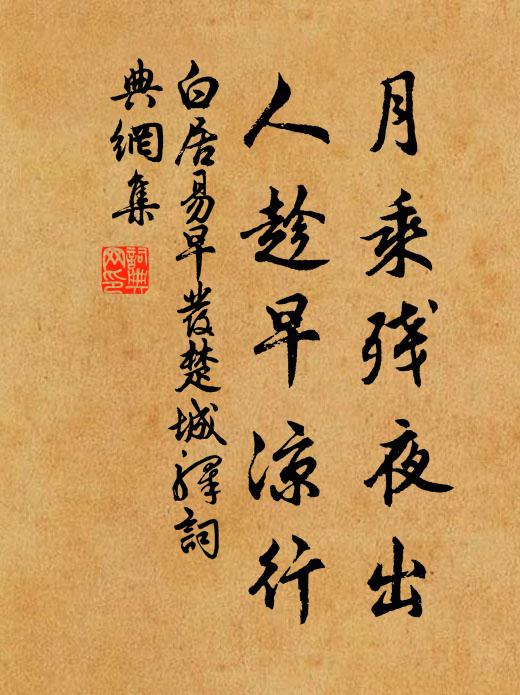 月乘残夜出
人趁早凉行
白居易早發楚城驛詞
典網集
詞典
网印